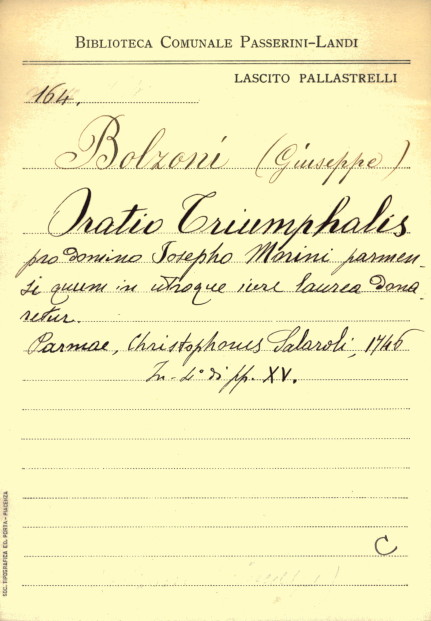 BIBLIOTECA COMUNALE PASSERINI-LANDI
LASCITO PALLASTRELLI
164.
Bolzoni (Giuseppe)
Oratio Triumphalis
pro domino Josepho Morini parmen-
si quum in utroque iure laurea dona-
retur.
Parmae, Christophorus Salaroli, 1746
In-4° di pp. XV.
C
SOC. TIPOGRAFICA ED. PORTA - PIACENZA